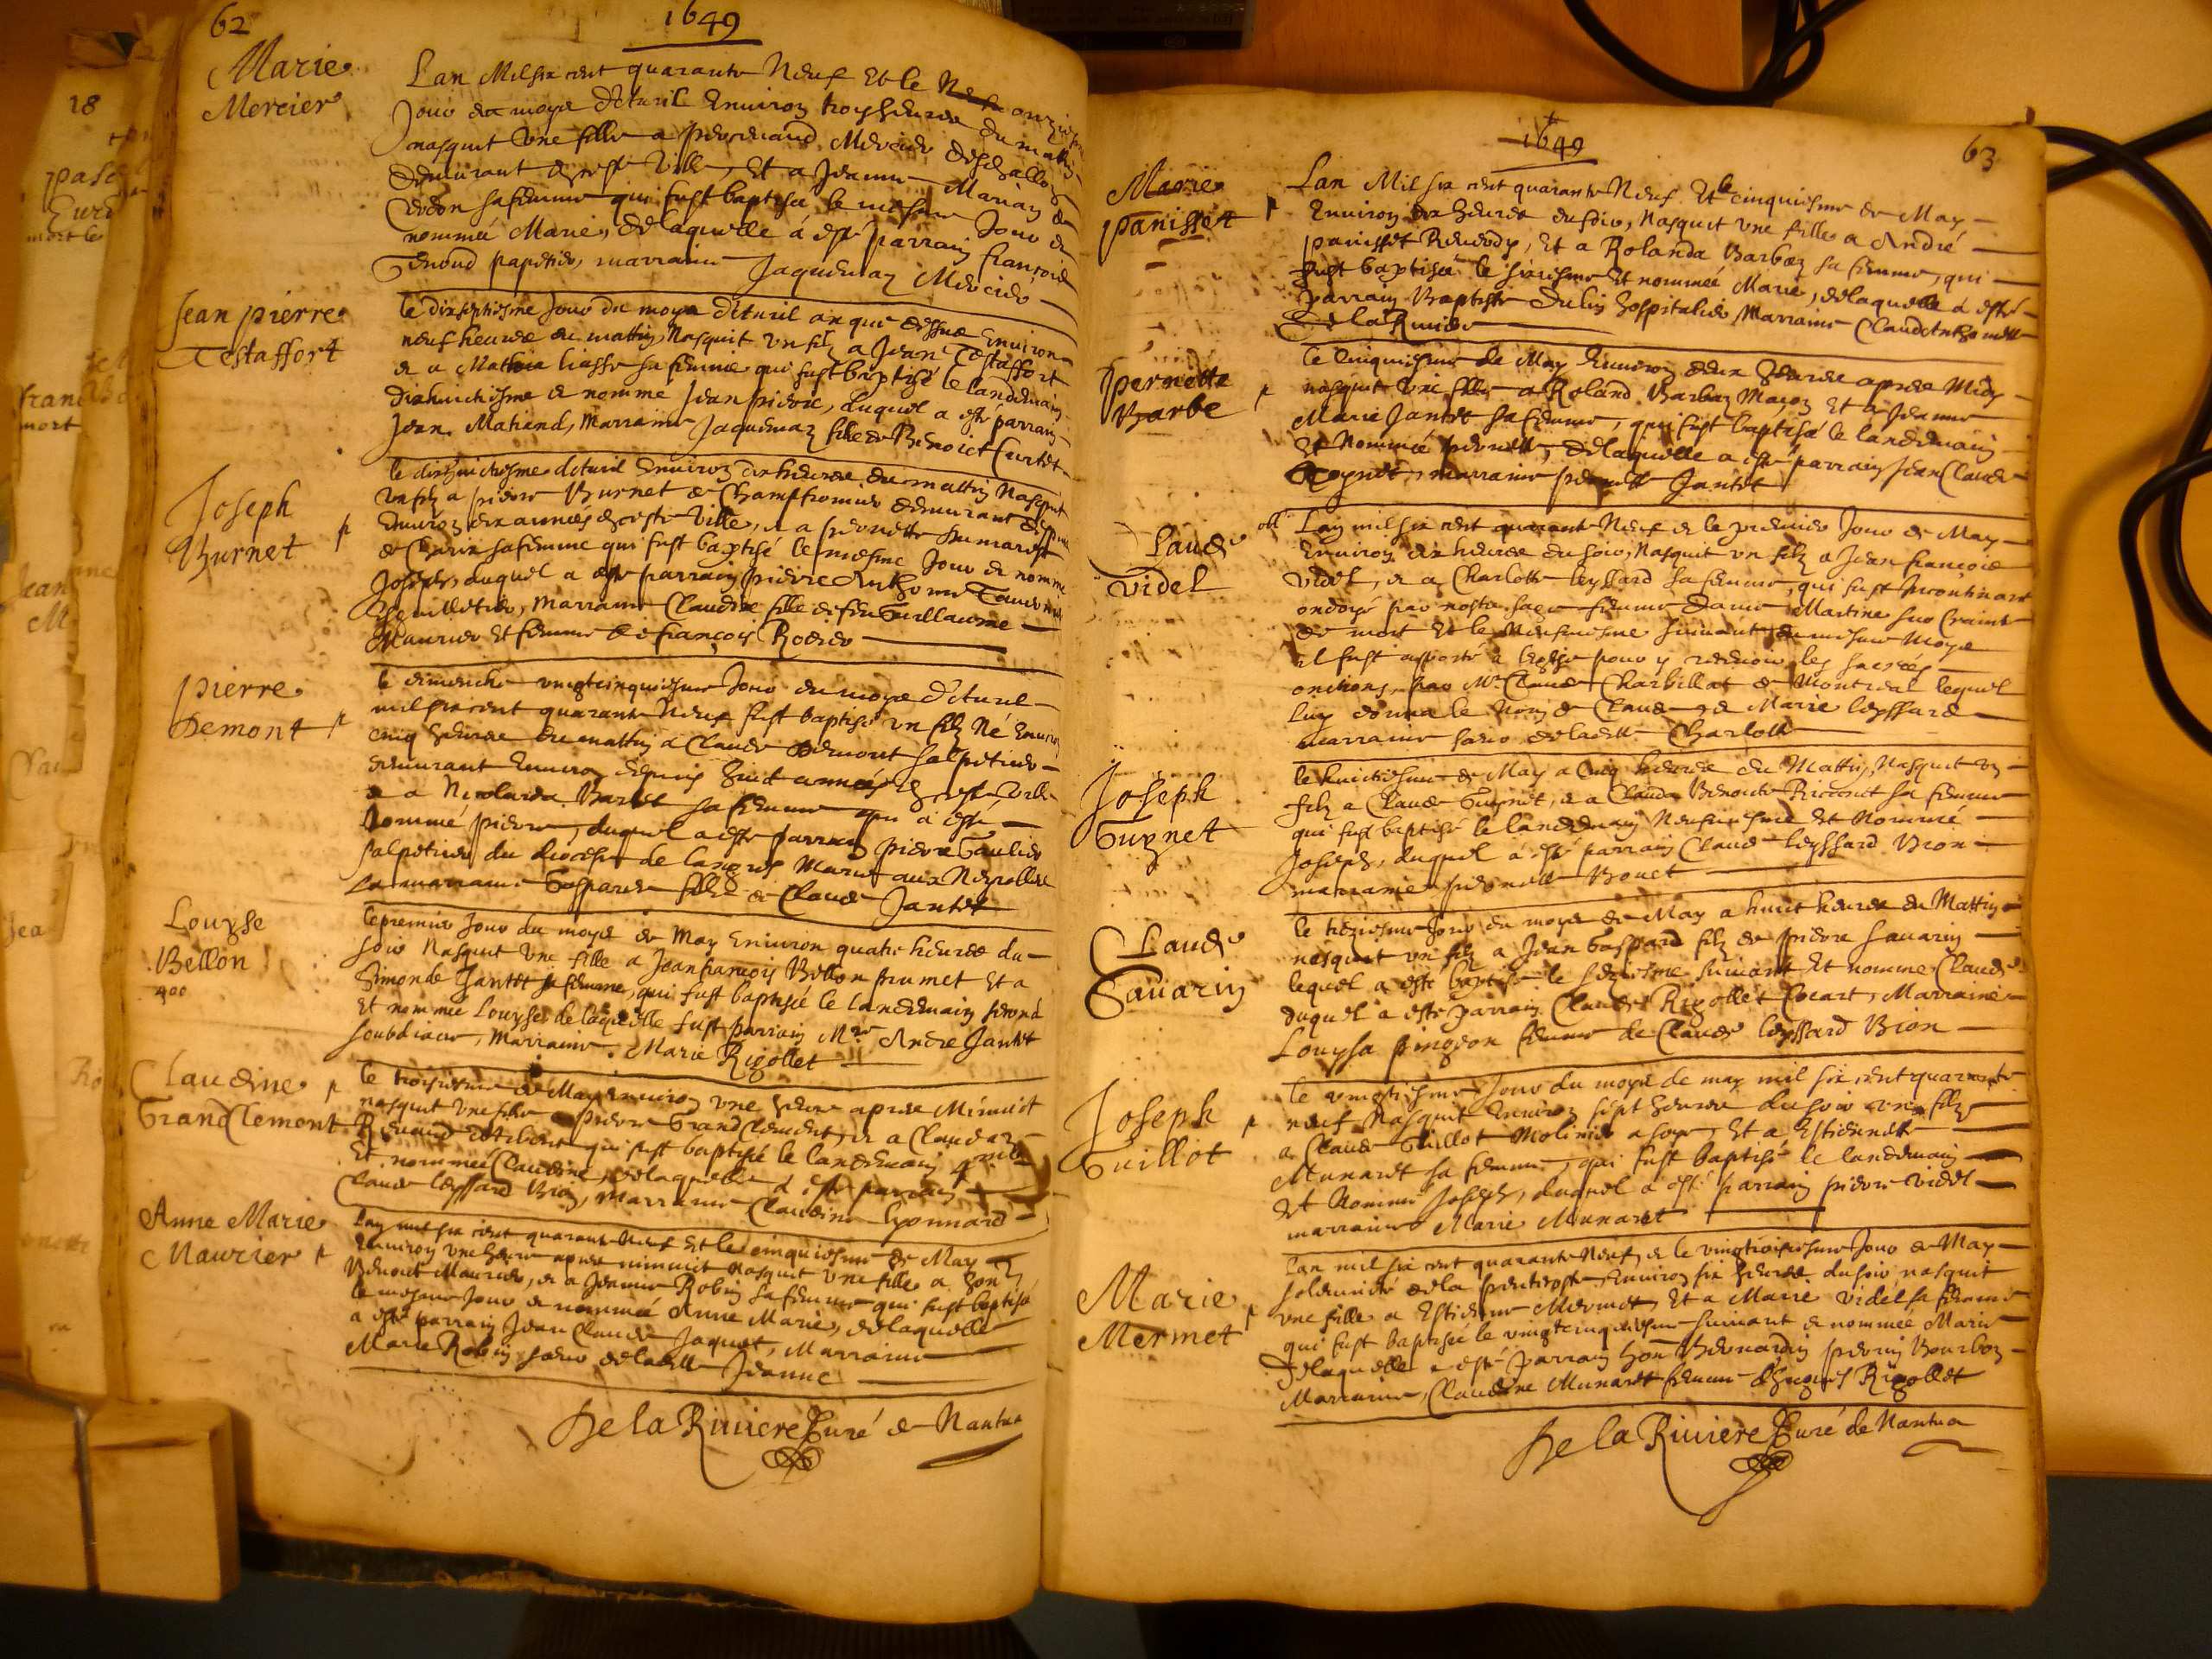 62
1649
Marie
Mercier
Lan Mil six cent quarante Neuf Et le onzie
Jour du moys d'Auril Enuiron troys heures du matin
nasquit Une fille a Mercier
demeurant en ceste Ville, Et a Jeanne Marian de
sa femme qui fust baptisée le mesme Jour Et
nommée Marie, de laquelle a esté parrain françois
papetier, marraine Jaquemaz Mercier
Jean pierre
Testaffort
le dixseptiesme Jour du moys d'Auril an que dessus Enuiron
neuf heures du mattin Nasquit un filz a Jean Testaffort
et a Mathia liasse sa femme qui fust baptisé le landemain
dixhuictiesme et nomme Jean pierre, duquel a esté parrain
Jean Matiend, Marraine Jaquemaz fille de Benoict Curtet
Joseph
Burnet
le dixhuictiesme d'Auril Enuiron dix heures du mattin Nasquit
un filz a pierre Burnet de Champfromier demeurant
Enuiron dix années en ceste Ville, et a pernette
de Charix sa femme qui fust baptisé le mesme Jour et nommé
Joseph, duquel a esté parrain pierre Anthoine
Marraine Claudine fille de feu Guillaume
Maurier Et femme de françois Rosier
pierre
Demont
le dimenche vingtcinquiesme Jour du moys d'Auril
mil six cent quarante Neuf fust baptisé un filz Né Enuiron
cinq heures du mattin a Claude Demont salpetrier
demeurant Enuiron depuis huict années en ceste Ville
et a Nicolarda Barbet sa femme qui a esté
Nommé pierre, duquel a esté parrain pierre Gaulier
salpetrier du diocese de langres Marié aux Neyrolles
la marraine Gasparde fille de Claude Jantet
Louyse
Bellon
400
le premier Jour du moys de May Enuiron quatre heures du
soir Nasquit Une fille a Jeanfrançois Bellon frumet Et a
Simonde Jantet sa femme, qui fust baptisée le Landemain second
Et nommée Louyse, de laquelle fust parrain Mre Andre Jantet
soubdiacre, Marraine Marie Rigollet
Claudine
GrandClement
le troisiesme de May enuiron une heure apres Minuict
nasquit une fille a pierre GrandClement, et a Claudaz
qui fust baptisée le landemain 4me
Et nommée Claudine, de laquelle a esté parrain
Claude leyssard Bion, Marraine Claudine lyonnard
Anne Marie
Maurier
Lan mil six cent quarante Neuf Et le cinquiesme de May
Enuiron une heure apres minuict nasquit Une fille a hon.
Benoict Maurier, et a Jeanne Robin sa femme qui fust baptisée
le mesme Jour et nommée Anne Marie, de laquelle
a esté parrain Jean Claude Jaquet, Marraine
Marie Robin soeur de ladite Jeanne
De la Riuiere Curé de Nantua
1649
63
Marie
panisset
Lan Mil six cent quarante Neuf Et le cinquiesme de May
Enuiron dix heures du soir, Nasquit une fille a André
panisset Reuerdy, Et a Rolanda Barbaz sa femme, qui
fust baptisée le sixiesme Et nommée Marie, de laquelle a esté
parrain Baptiste Dulin hospitalier, Marraine Claud Anthoinette
De la Riuiere
pernette
Barbe
le cinquiesme de May Enuiron deux heures apres Midy
nasquit une fille a Roland Barbaz Maçon Et a Jeanne
Marie Jantet sa femme, qui fust baptisée le landemain
Et Nommée pernette, de laquelle a esté parrain Jean Claude
marraine pernette Jantet
Claude
Videl
Lan mil six cent quarante Neuf et le premier Jour de May
Enuiron dix heures du soir, Nasquit un filz a Jean françois
Videl, et a Charlotte leyssard sa femme, qui fust Incontinant
ondoyé par nostre sage femme dame Martine sur Crainte
de mort Et le Neufuiesme suiuant du mesme Moys
il fust apporté a leglise pour y receuoir les sacrées
onctions, par Mre Claude Charbillat de Montreal lequel
luy donna le Nom de Claude, et Marie leyssard
marraine soeur de ladite Charlotte
Joseph
Guynet
le huictiesme de May a Cinq heures du Mattin, Nasquit un
filz a Claude Guynet, et a Clauda Benoicte sa femme
qui fust baptisé le landemain Neufuiesme Et Nommé
Joseph, duquel a esté parrain Claude leyssard Bion
marraine pernette Bouet
Claude
Sauarin
le treziesme Jour du moys de May a huict heures du Mattin
nasquit un filz a Jean Gaspard filz de pierre Sauarin
lequel a esté baptisé le seziesme suiuant Et nommé Claude
duquel a esté parrain Claude Rigollet Cocart, Marraine
Louysa pingeon femme de Claude leyssard Bion
Joseph
Guillot
le vingtiesme Jour du moys de may mil six cent quarante
neuf Nasquit Enuiron sept heures du soir un filz
a Claude Guillot Molinier a soye, Et a Estiennette
Munaret sa femme, qui fust baptisé le landemain
Et Nommé Joseph, duquel a esté parrain pierre Videl
marraine Marie Munaret
Marie
Mermet
Lan mil six cent quarante Neuf, et le vingttroisiesme Jour de May
solemnité de la pentecoste, Enuiron six heures du soir nasquit
une fille a Estienne Mermet, Et a Marie Videl sa femme
qui fust baptisée le vingtcinquiesme suiuant et nommée Marie
de laquelle a esté parrain hon. Bernardin perrin Bourbon
Marraine, Claudine Munaret femme d'hugues Rigollet
De la Riuiere Curé de Nantua